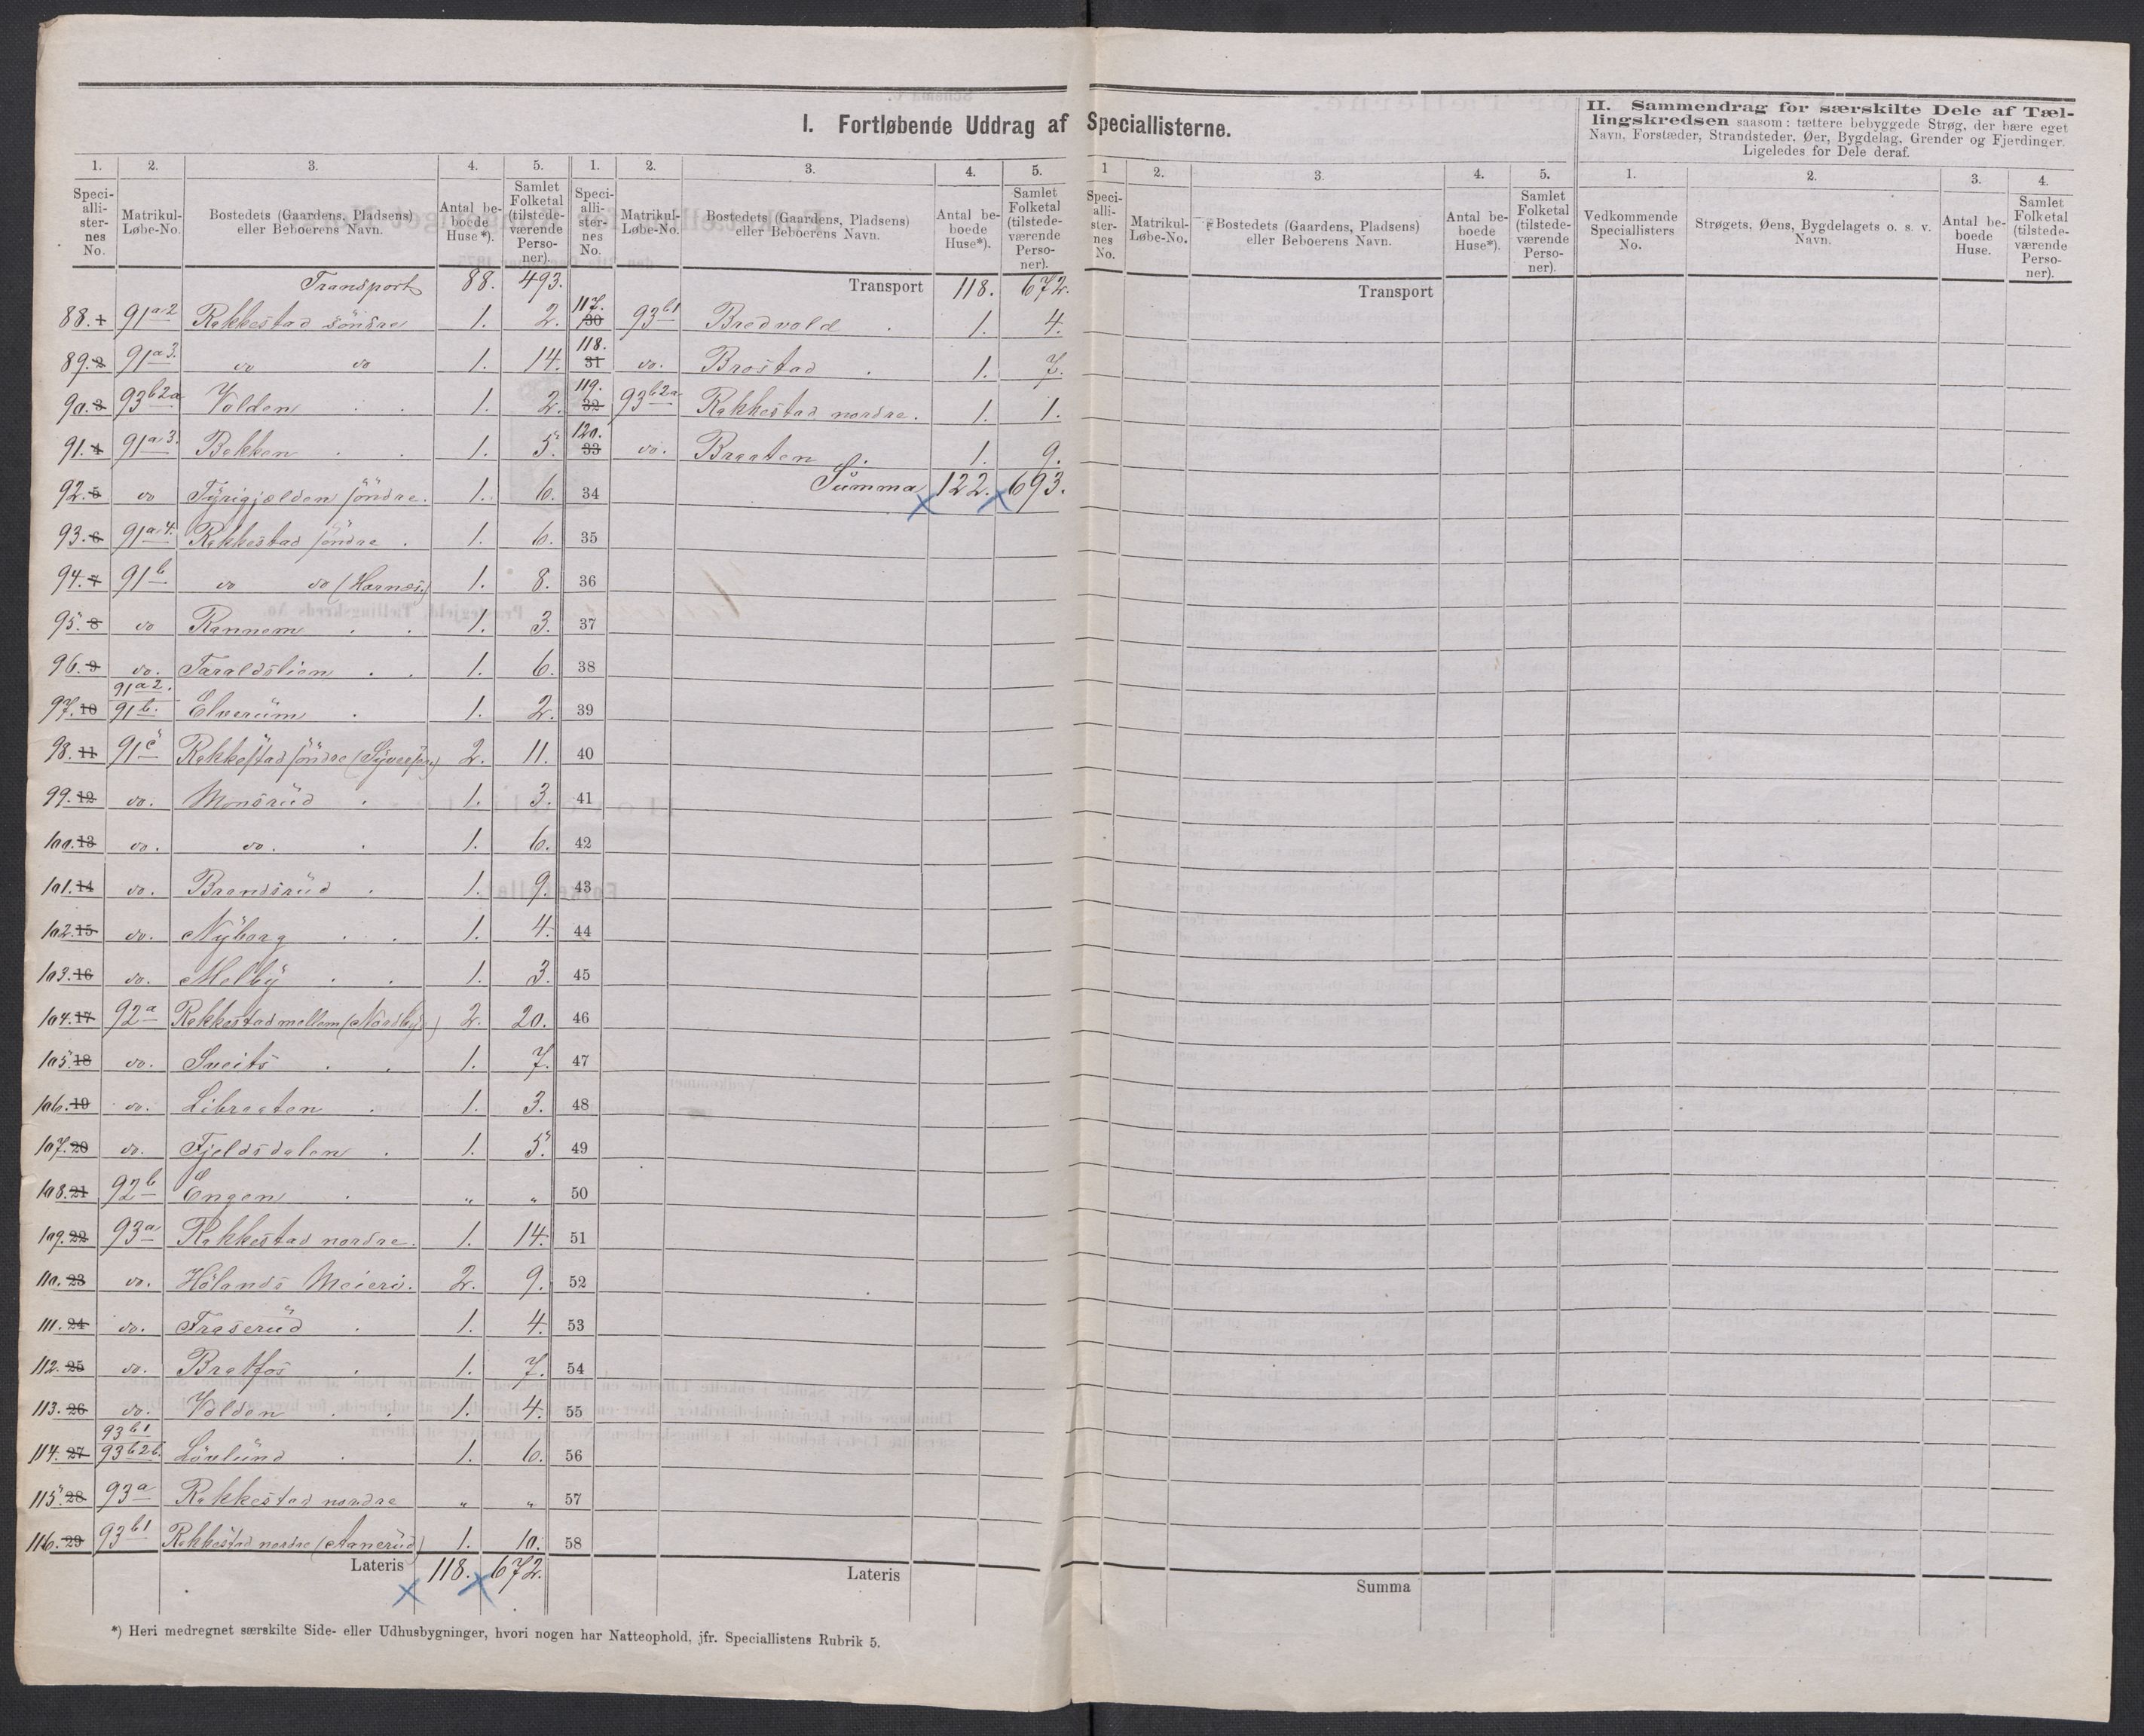 I. Fortløbende Uddrag af Speciallisterne.
II. Sammendrag for særskilte Dele af Tællingskredsen saasom: tættere bebyggede Strøg, der bære eget
Navn, Forstæder, Strandsteder, Øer, Bygdelag, Grender og Fjerdinger.
Ligeledes for Dele deraf.
1. 2. 3. 4. 5.
Speciallisternes No. Matrikul-Løbe-No. Bostedets (Gaardens, Pladsens) eller Beboerens Navn. Antal beboede Huse*). Samlet Folketal (tilstedeværende Personer).
Transport 88. 493.
88. 1 91a2 Rakkestad söndre 1. 2.
89. 2 91a3. do do 1. 14.
90. 3 93b2a Volden 1. 2.
91. 4 91a3. Bakken 1. 5.
92. 5 do Tyrigjælden söndre. 1. 6.
93. 6 91a4. Rakkestad söndre 1. 6.
94. 7 91b do do (Harnæs) 1. 8.
95. 8 do Rannem 1. 3.
96. 9 do. Taraldslien 1. 6.
97. 10 91a2. 91b. Elverum 1. 2.
98. 11 91c Rakkestad söndre 2. 11.
99. 12 do. Monsrud 1. 3.
100. 13 do. do. 1. 6.
101. 14 do. Brandsrud 1. 9.
102. 15 do. Nyborg 1. 4.
103. 16 do. Melby 1. 3.
104. 17 92a Rakkestad mellem (Nordby) 2. 20.
105. 18 do. Sneits 1. 7.
106. 19 do. Libraaten 1. 3.
107. 20 do. Fjeldsdalen 1. 5.
108. 21 92b Engen " "
109. 22 93a Rakkestad nordre. 1. 14.
110. 23 do. Hölands Meieri. 2. 9.
111. 24 do. Fraserud 1. 4.
112. 25 do. Bratfos 1. 7.
113. 26 do. Volden 1. 4.
114. 27 93b1 93b2b. Lövlund 1. 6.
115. 28 93a Rakkestad nordre " "
116. 29 93b1 Rakkestad nordre (Aanerud) 1. 10.
Lateris 118. 672.
*) Heri medregnet særskilte Side- eller Udhusbygninger, hvori nogen har Natteophold, jfr. Speciallistens Rubrik 5.
1. 2. 3. 4. 5.
Speciallisternes No. Matrikul-Løbe-No. Bostedets (Gaardens, Pladsens) eller Beboerens Navn. Antal beboede Huse*). Samlet Folketal (tilstedeværende Personer).
Transport 118. 672.
117. 30 93b1 Bredvold 1. 4.
118. 31 do. Brostad 1. 7.
119. 32 93b2a Rakkestad nordre. 1. 1.
120. 33 do. Braaten 1. 9.
34 Summa 122. 693.
35
36
37
38
39
40
41
42
43
44
45
46
47
48
49
50
51
52
53
54
55
56
57
58
Lateris
1 2. 3. 4. 5.
Speciallisternes No. Matrikul-Løbe-No. Bostedets (Gaardens, Pladsens) eller Beboerens Navn. Antal beboede Huse*). Samlet Folketal (tilstedeværende Personer).
Transport
Summa
1. 2. 3. 4.
Vedkommende Speciallisters No. Strøgets, Øens, Bygdelagets o. s. v. Navn. Antal beboede Huse. Samlet Folketal (tilstedeværende Personer).